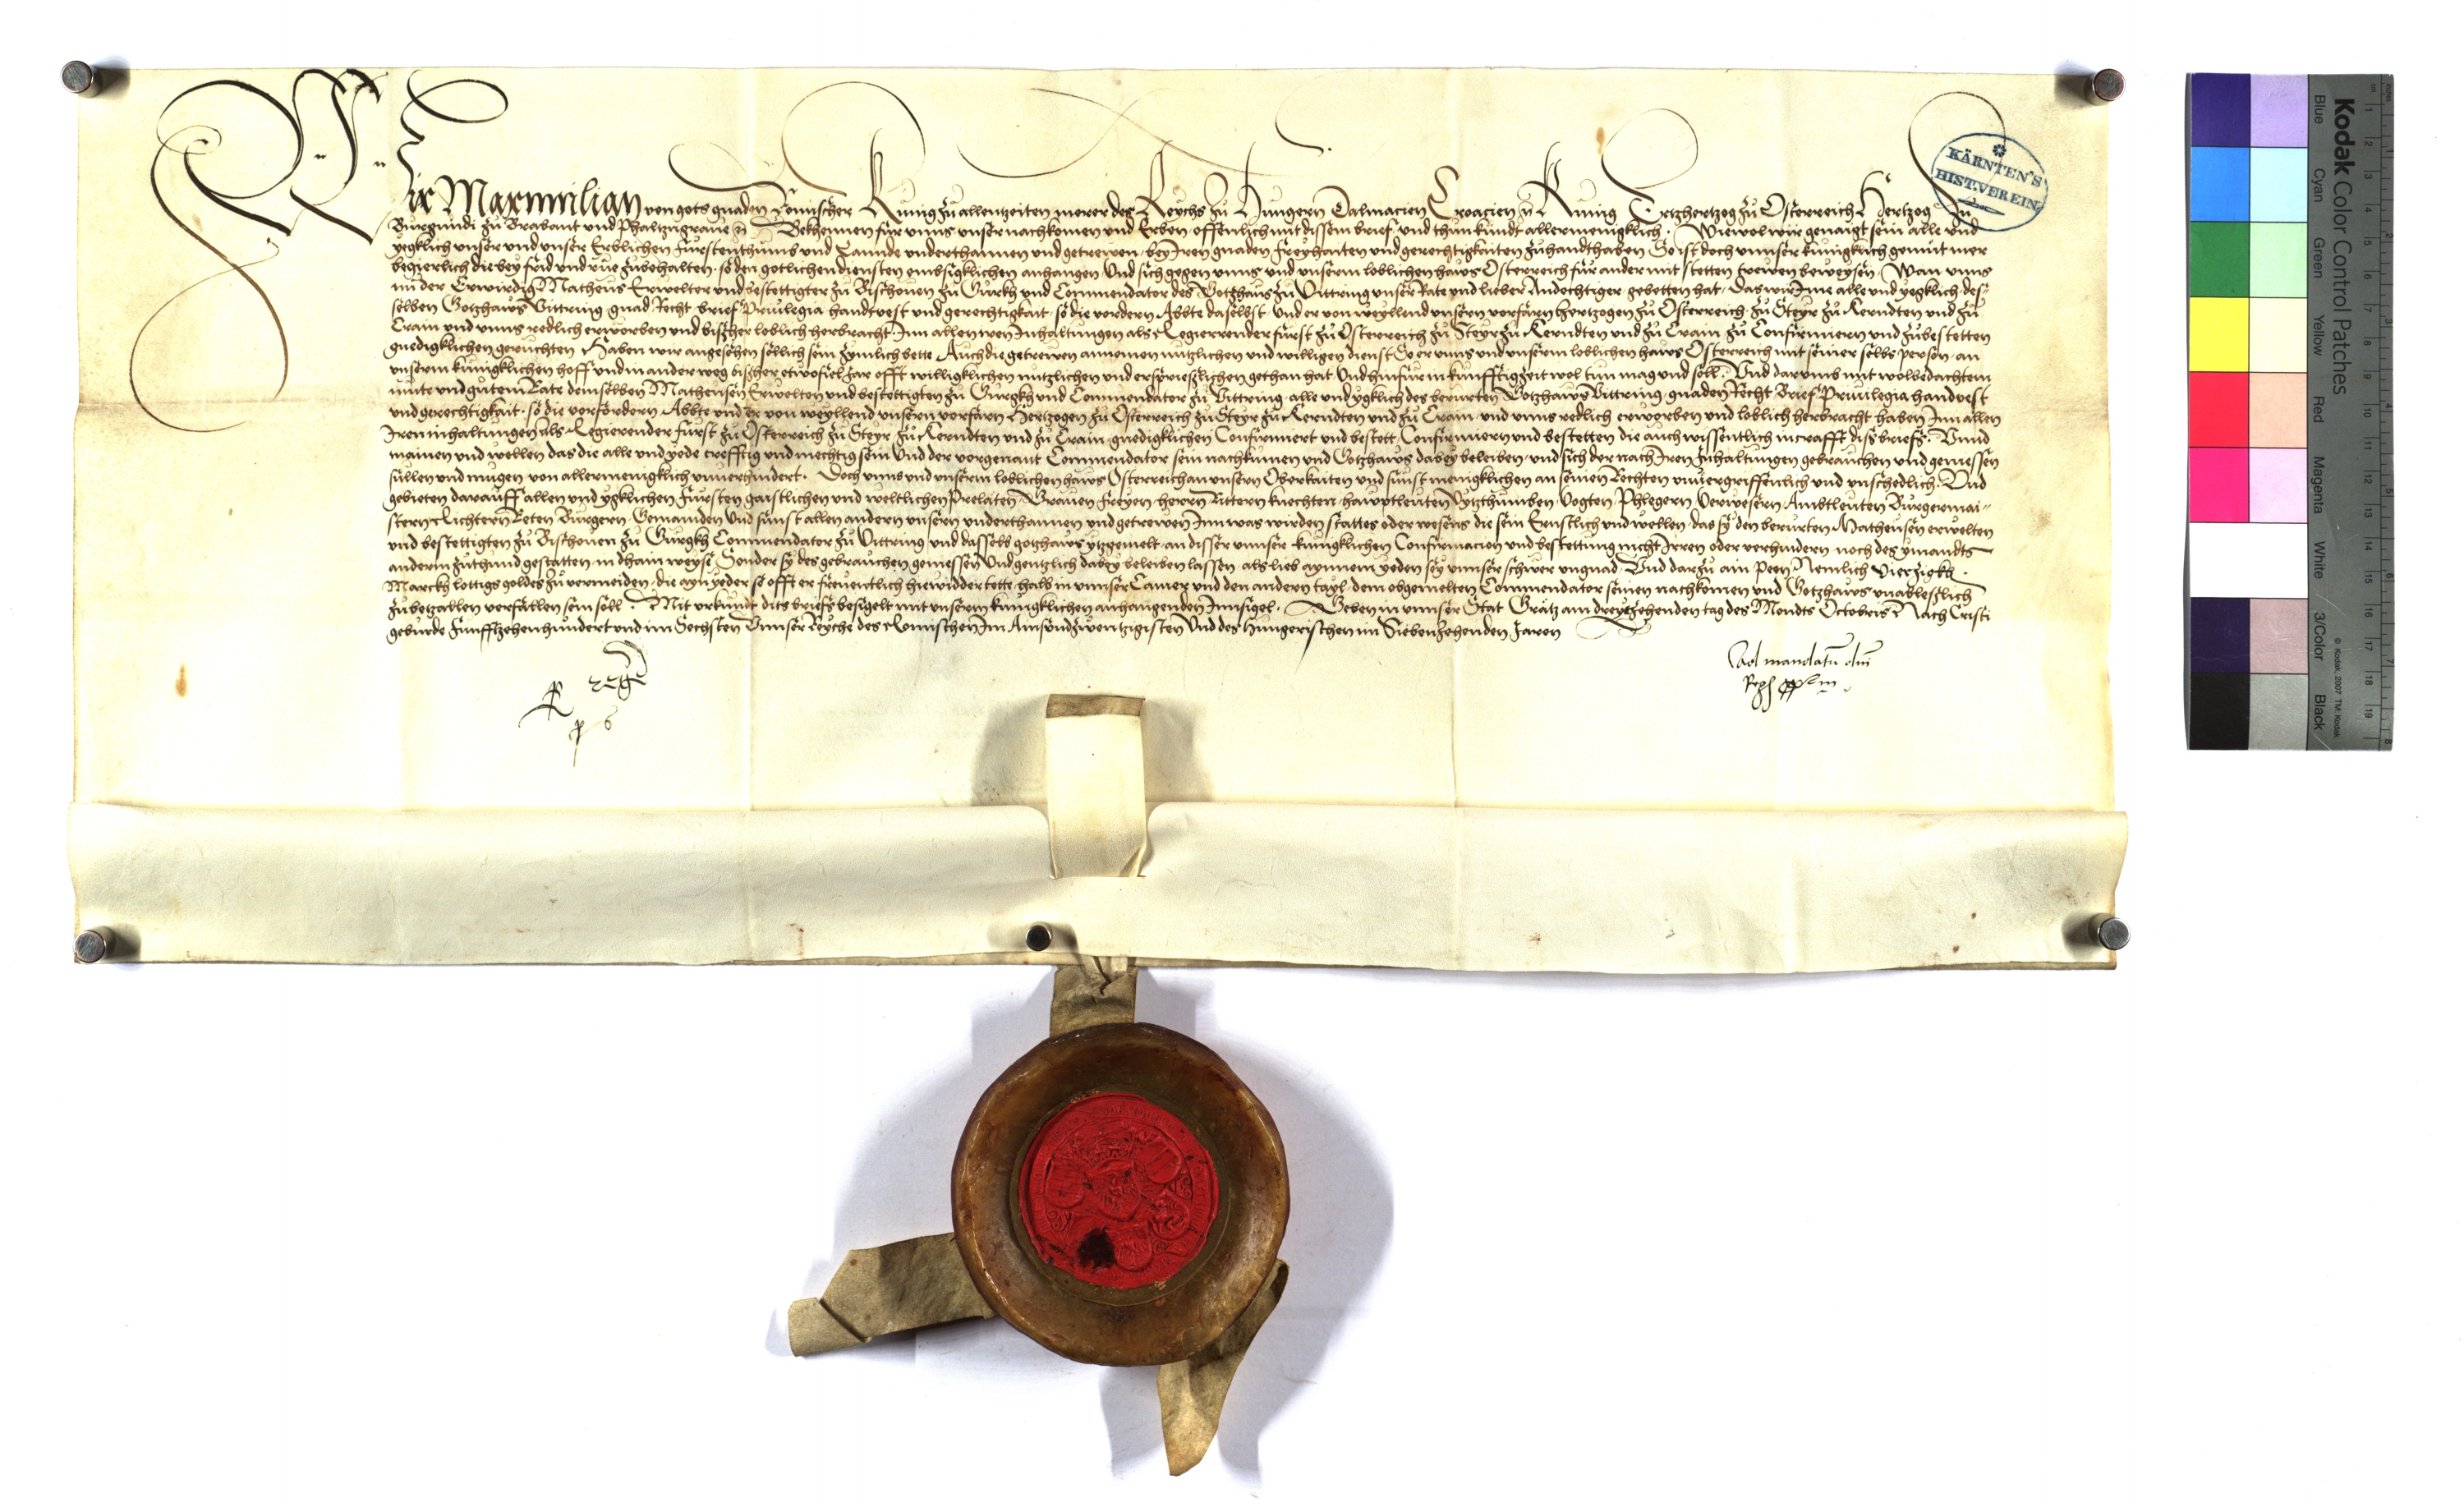 Wir Maximilian von gots gnaden Römischer Kunig zu allentzeiten merer des Reychs zu Hungern Dalmacien Croacien rc Kunig Ertzhertzog zu Osterreich Hertzog zu
Burgundi zu Brabant und Phaltzngraue rc Bekhennen für unns unser nachkomen und Erben offenlich mit dissem brief und thun kundt allermenigklich. Wiewol wir genaigt sein alle und
yegklich unser und unser Erblichen Fürstenthumb und Lannde underthannen und getrewen bey Iren gnaden Freyhaiten und gerechtigkaiten zuhandthaben So ist doch unnser kunigklich gemüt mer
begierlich die bey frid und rue zubehalten, so den gotlichen diensten emsigklichen anhangen Und sich gegen unns und unserm loblichen haws Osterreich für ander mit stetten trewen beweysen, Wan unns
nu der Erwirdig Matheus Erwelter und bestettigter zu Bischouen zu Gurkh und Commendator des Gotzhaus zu Vittring unser Rate und lieber Andechtiger gebetten hat, Das wir Ime alle und yegklich des
selben Gotzhaws Vittring gnad Recht brief Priuilegia handtvest und gerechtigkait, so die vordern Abbte daselbst Und er von weyllend unsern vorfarn Hertzogen zu Osterreich zu Steyr zu Kerndten und zu
Crain und unns redlich erworben und bisher loblich herbracht, Inn allen iren Inhaltungen als Regierrender fürst zu Osterreich zu Steyr zu Kerndten und zu Crain zu Confirmiern und zubestetten
gnedigklichen geruchten Haben wir angesehen sollich sein zymlich bette Auch die getrewen annemen nützlichen und willigen dienst So er unns und unserm loblichen haws Osterreich mit seiner selbs person, an
unserm kunigklichen hoff und in ander weg bisher etwofil Jar offt willigklichen nutzlichen und erspriesslichen gethan hat Und hinfür in künfftig zeit wol tun mag und soll. Und darumb mit wolbedachtem
müte und gutem Rate demselben Matheusen Erwelten und bestettigten zu Gurgkh und Commendator zu Vittring alle und ygklich des berurten Gotzhaws Vittring gnaden Recht Brief Priuilegia handvest
und gerechtigkait, so die vorfordern Abbte und Er von weyllend unsern vorfarn Hertzogen zu Osterreich zu Steyr zu Kerndten und zu Crain und unns redlich erworben und loblich herbracht haben Inn allen
Iren inhaltungen als Regierender fürst zu Osterreich zu Steyr zu Kerndten und zu Crain gnedigklichen Confirmiert und bestett, Confirmiern und bestetten die auch wissentlich in crafft diss briefs. Unnd
mainen und wellen das die alle und yede crefftig und mechtig sein Und der vorgenant Commendator sein nachkumen und Gotzhaws dabey beleiben, und sich der nach Iren Inhaltungen gebrauchen und geniessen
sullen und mugen von allermenigklich unuerhindert. Doch unns und unserm loblichen haws Osterreich an unsern Oberkaiten und sunst menigklichen an seinen Rechten unuergriffenlich und unschedlich. Und
gebieten darauff allen und ygklichen Fürsten gaistlichen und weltlichen Prelaten Grauen freyen herrn Rittern knechten haubtleuten Vytzthumben, Vogten Phlegern Verwesern Ambtleuten Burgermai-
stern Richtern Reten Burgern Gemainden Und sunst allen andern unsern underthannen und getrewen Inn was wirden stattes oder wesens die sein Ernstlich und wellen, das sy den berurten Matheusen erwelten
und bestettigten zu Bischouen zu Gurgkh Commendator zu Vittring und dasselb gotzhaws ytzgemelt, an disser unnser kunigklichen Confirmacion und bestettung nicht Irren oder verhindern noch des ymandts
anderm zuthund gestatten, in dhain weyse, Sonder sy des gebrauchen geniessen Und gentzlich dabey beleiben lassen, als lieb aynnem yeden sey unnser schwer ungnad, Und darzu ain Peen Nemlich Vierzigkh
Marckh lottigs goldes zuvermeiden, die ayn yeder so offt er freuentlich hiewidder tette, halb in unnser Camer und den andern tayl, dem obgemelten Commendator seinen nachkomen und Gotzhaws unableslich
zubetzallen verfallen sein soll. Mit urkundt ditz briefs besigelt mit unserm kunigklichen anhangenden Innsigel. Geben in unnser Stat Grätz am dreyzehenden tag des Mondts Octobris Nach Cristi
geburde Funfftzehenhundert und im Sechsten Unnser Reyche des Römischen Im Ainsundzwentzigisten Und des Hungerischen im Siebenzehenden Jaren
Ad mandatu dni
Regis ppm
p rege
p s
KÄRNTEN'S
HIST. VEREIN
Kodak Color Control Patches
© Kodak, 2007 TM: Kodak
Blue Cyan Green Yellow Red Magenta White 3/Color Black
1 2 3 4 5 6 7 8 9 10 11 12 13 14 15 16 17 18 19